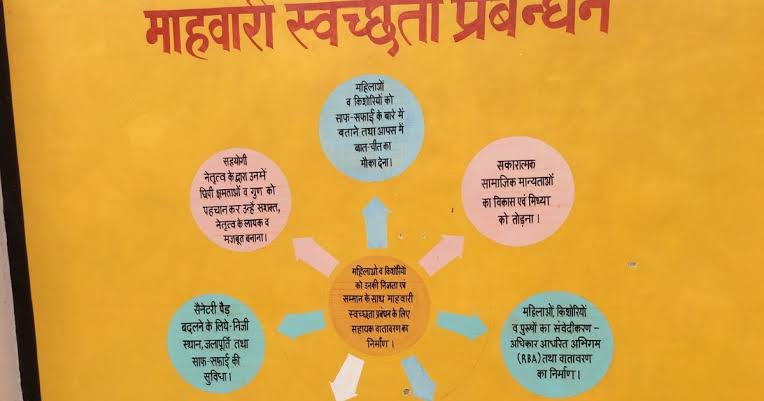 माहवारी स्वच्छता प्रबन्धन
महिलाओं
व किशोरियों को
साफ-सफाई के बारे में
बताने तथा आपस में
बात-चीत का
मौका देना।
सहयोगी
नेतृत्व के द्वारा उनमें
छिपी क्षमताओं व गुण को
पहचान कर उन्हे सशक्त,
नेतृत्व के लायक व
मजबूत बनाना।
सकारात्मक
सामाजिक मान्यताओं
का विकास एवं मिथ्या
को तोड़ना।
महिलाओं व किशोरियों
को उनकी निजता एवं
सम्मान के साथ माहवारी
स्वच्छता प्रबंधन के लिए
सहायक वातावरण का
निर्माण।
सैनेटरी पैड़
बदलने के लिये-निजी
स्थान, जलापूर्ति तथा
साफ-सफाई की
सुविधा।
महिलाओं, किशोरियों
व पुरुषों का संवेदीकरण -
अधिकार आधारित अभिगम
(RBA) तथा वातावरण
का निर्माण।